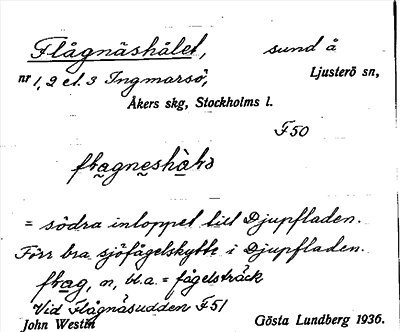 Flågnäshålet, sund å
nr 1, 2 et. 3 Ingmarsö, Ljusterö sn,
Åkers skg, Stockholms l.
F50
= södra inloppet till Djupfladen.
Förr bra sjöfågelskytte i Djupfladen.
flag, n, bl.a. = fågelsträck
Vid Flågnäsudden F51
John Westin Gösta Lundberg 1936.